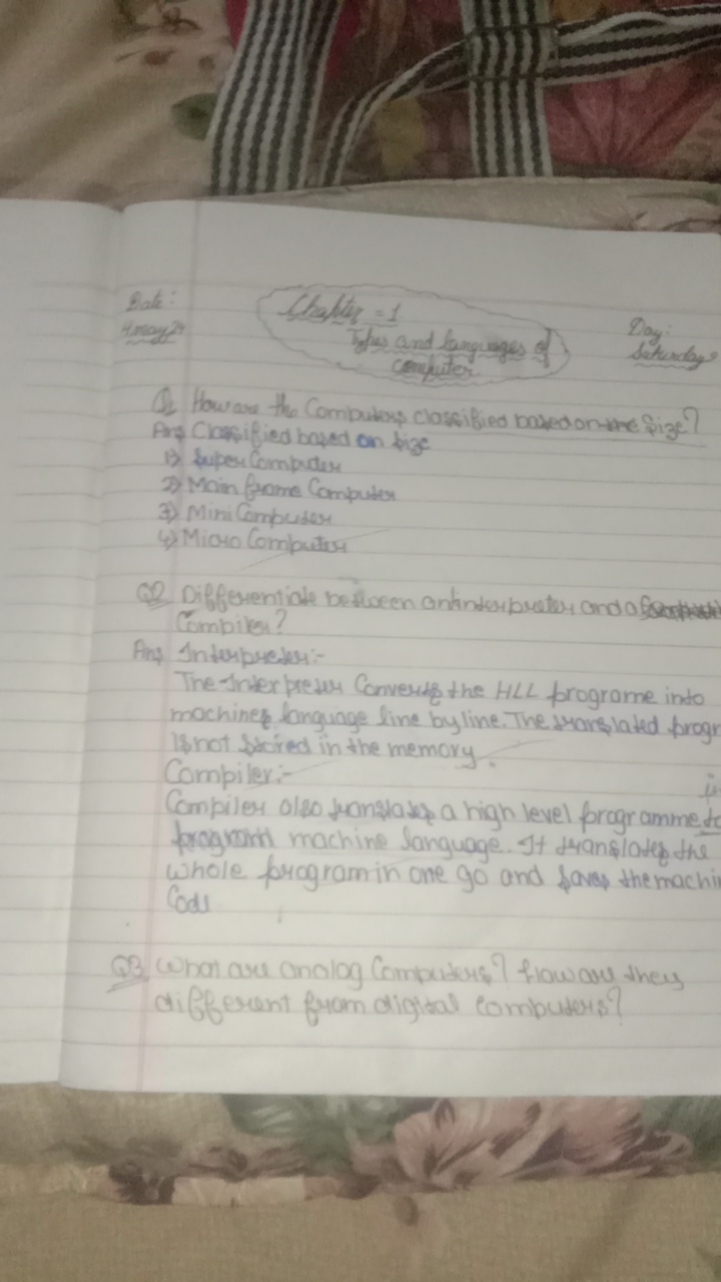 Date:
4 may 24
Chapter = 1
Types and languages of
computer
Day:
Saturday
Q1 How are the Computers classified based on the Size?
Ans Classified based on Size
1) Super Computer
2) Main frame Computer
3) Mini Computer
4) Micro Computer
Q2 Differentiate between an interpreter and a
Compiler?
Ans Interpreter:-
The Interpreter Converts the HLL programe into
machines language line by line. The translated progr
is not stored in the memory.
Compiler:-
Compiler also translates a high level programme to
program machine language. It translates the
whole program in one go and saves the machin
Code
Q3 What are analog Computers? How are they
different from digital computers?